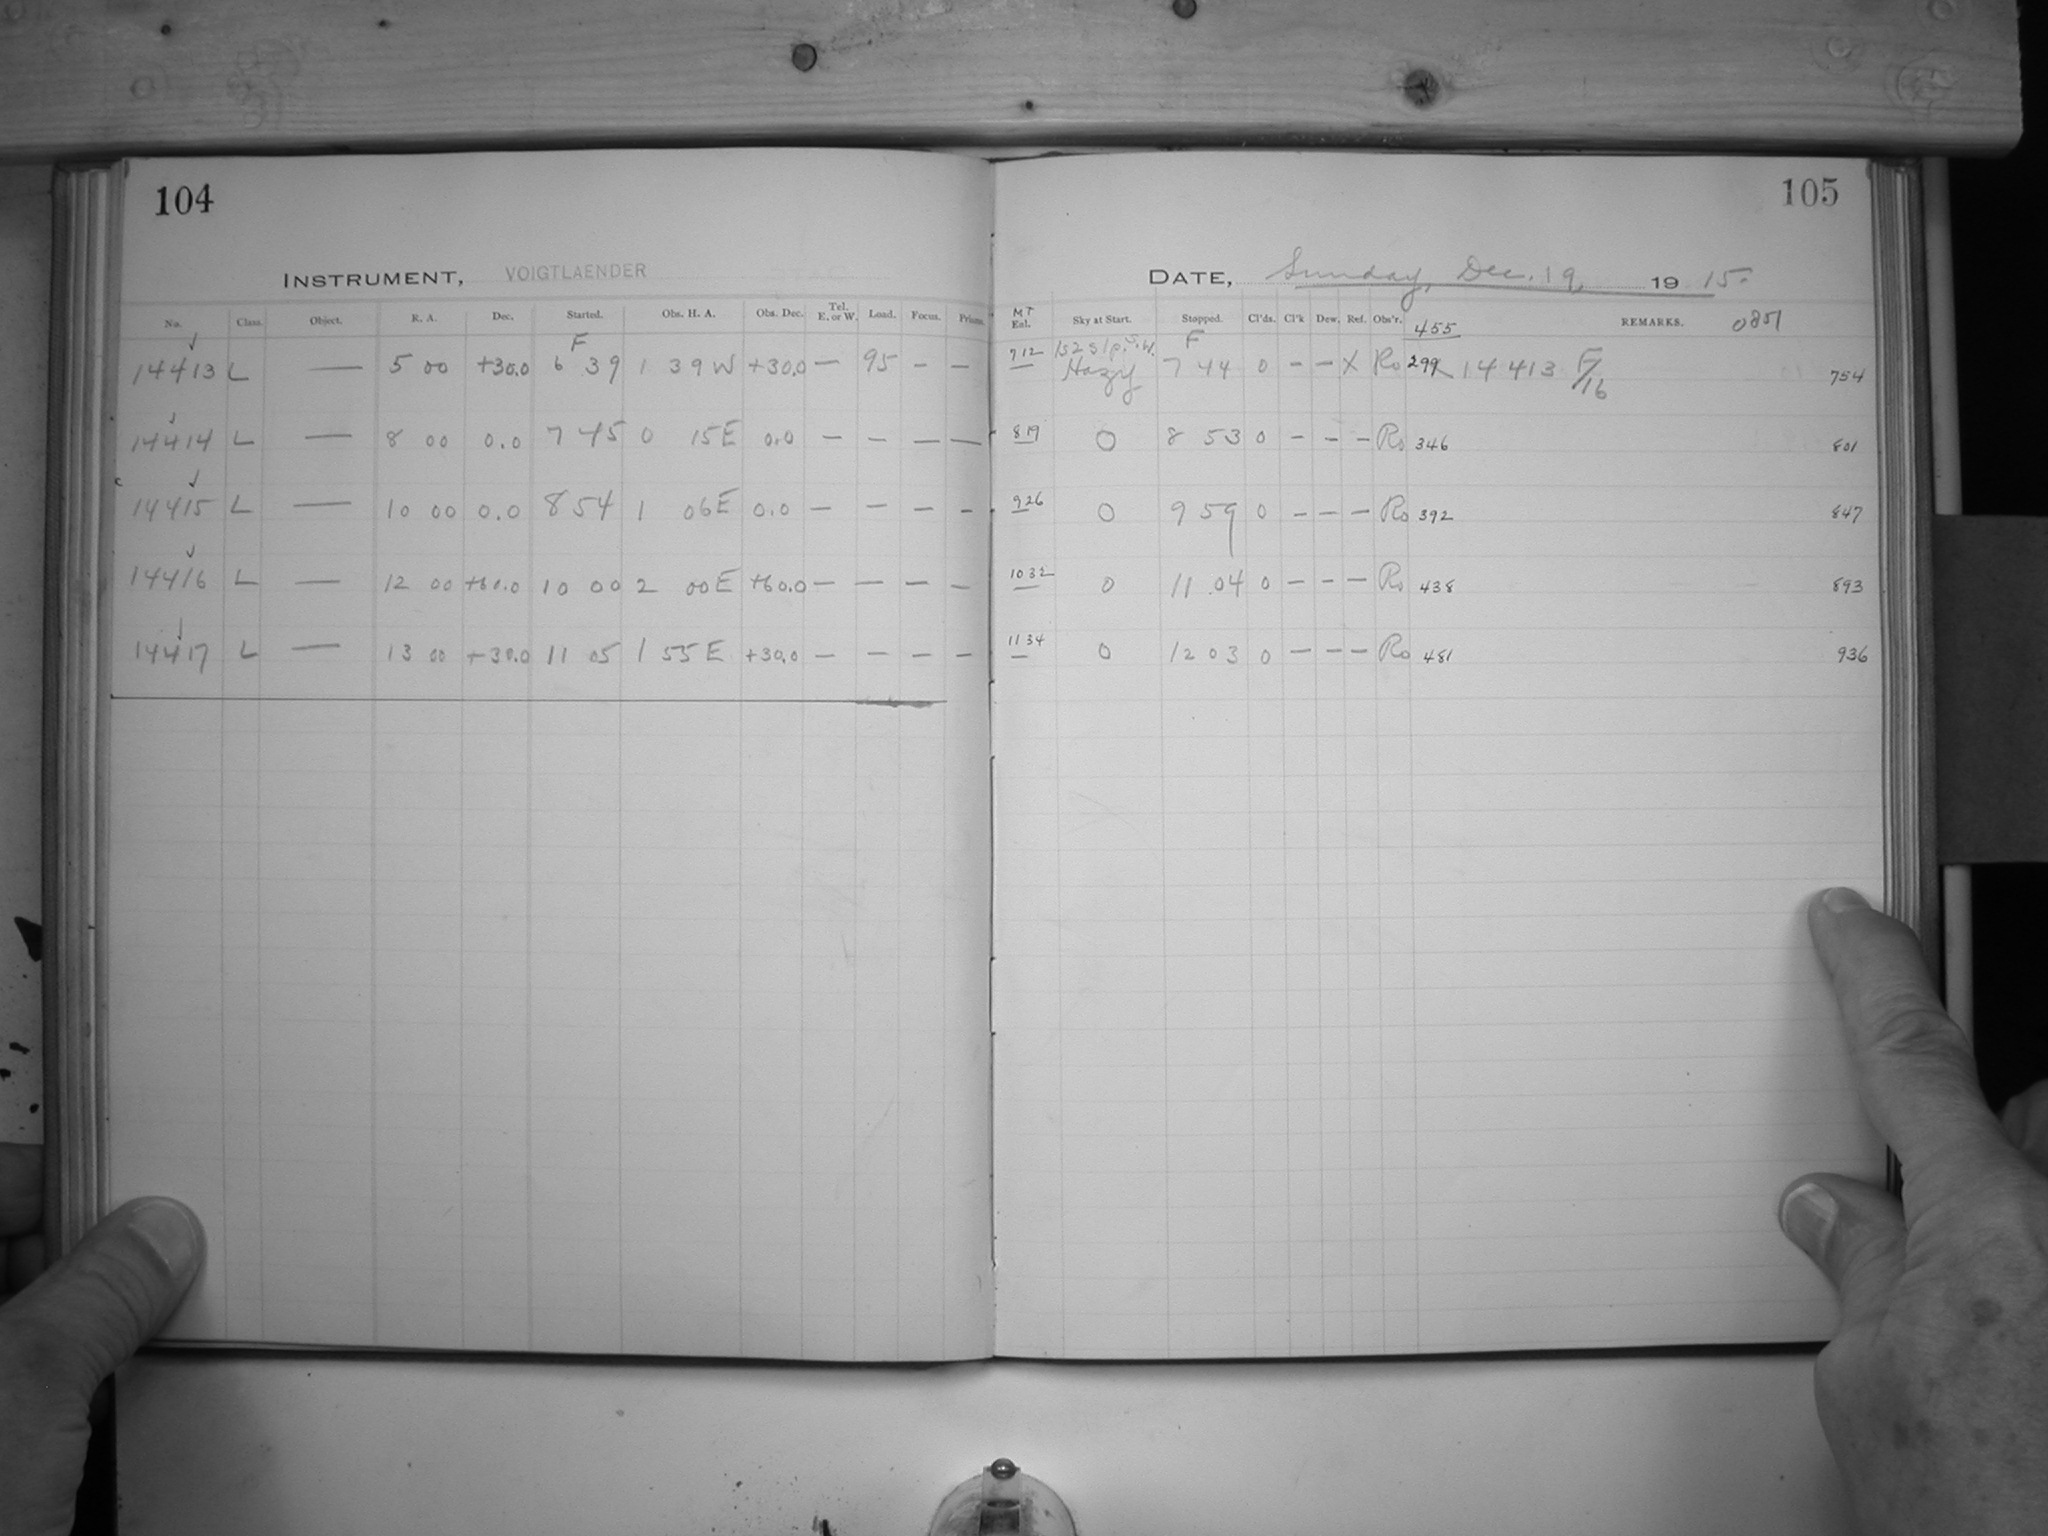 104
INSTRUMENT, VOIGTLAENDER
No. Class. Object. R. A. Dec. Started. Obs. H. A. Obs. Dec. Tel. E. or W. Load. Focus. Prisms.
14413 L — 5 00 +30.0 F 6 39 1 39 W +30.0 — 95 — —
14414 L — 8 00 0.0 7 45 0 15 E 0.0 — — — —
14415 L — 10 00 0.0 8 54 1 06 E 0.0 — — — —
14416 L — 12 00 +60.0 10 00 2 00 E +60.0 — — — —
14417 L — 13 00 +30.0 11 05 1 55 E +30.0 — — — —
105
DATE, Sunday, Dec. 19, 19 15.
MT Enl. Sky at Start. Stopped. Cl'ds. Cl'k Dew. Ref. Obs'r. 455 REMARKS. 0851
712 Hazy F 7 44 0 — — X Ro 299 14413 F/16 754
819 0 8 53 0 — — — Ro 346 801
926 0 9 59 0 — — — Ro 392 847
1032 0 11 04 0 — — — Ro 438 893
1134 0 12 03 0 — — — Ro 481 936